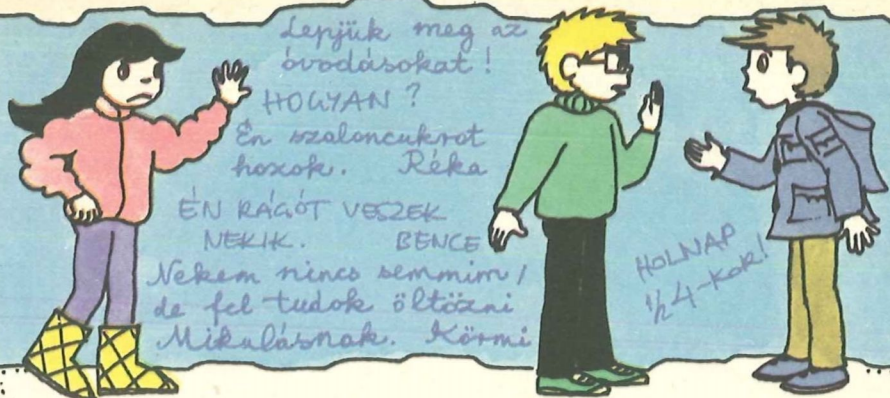 Lepjük meg az
óvodásokat!
HOGYAN?
Én szaloncukrot
hozok. Réka
ÉN RÁGÓT VESZEK
NEKIK. BENCE
Nekem nincs semmim,
de fel tudok öltözni
Mikulásnak. Körmi
HOLNAP
1/2 4-kor!